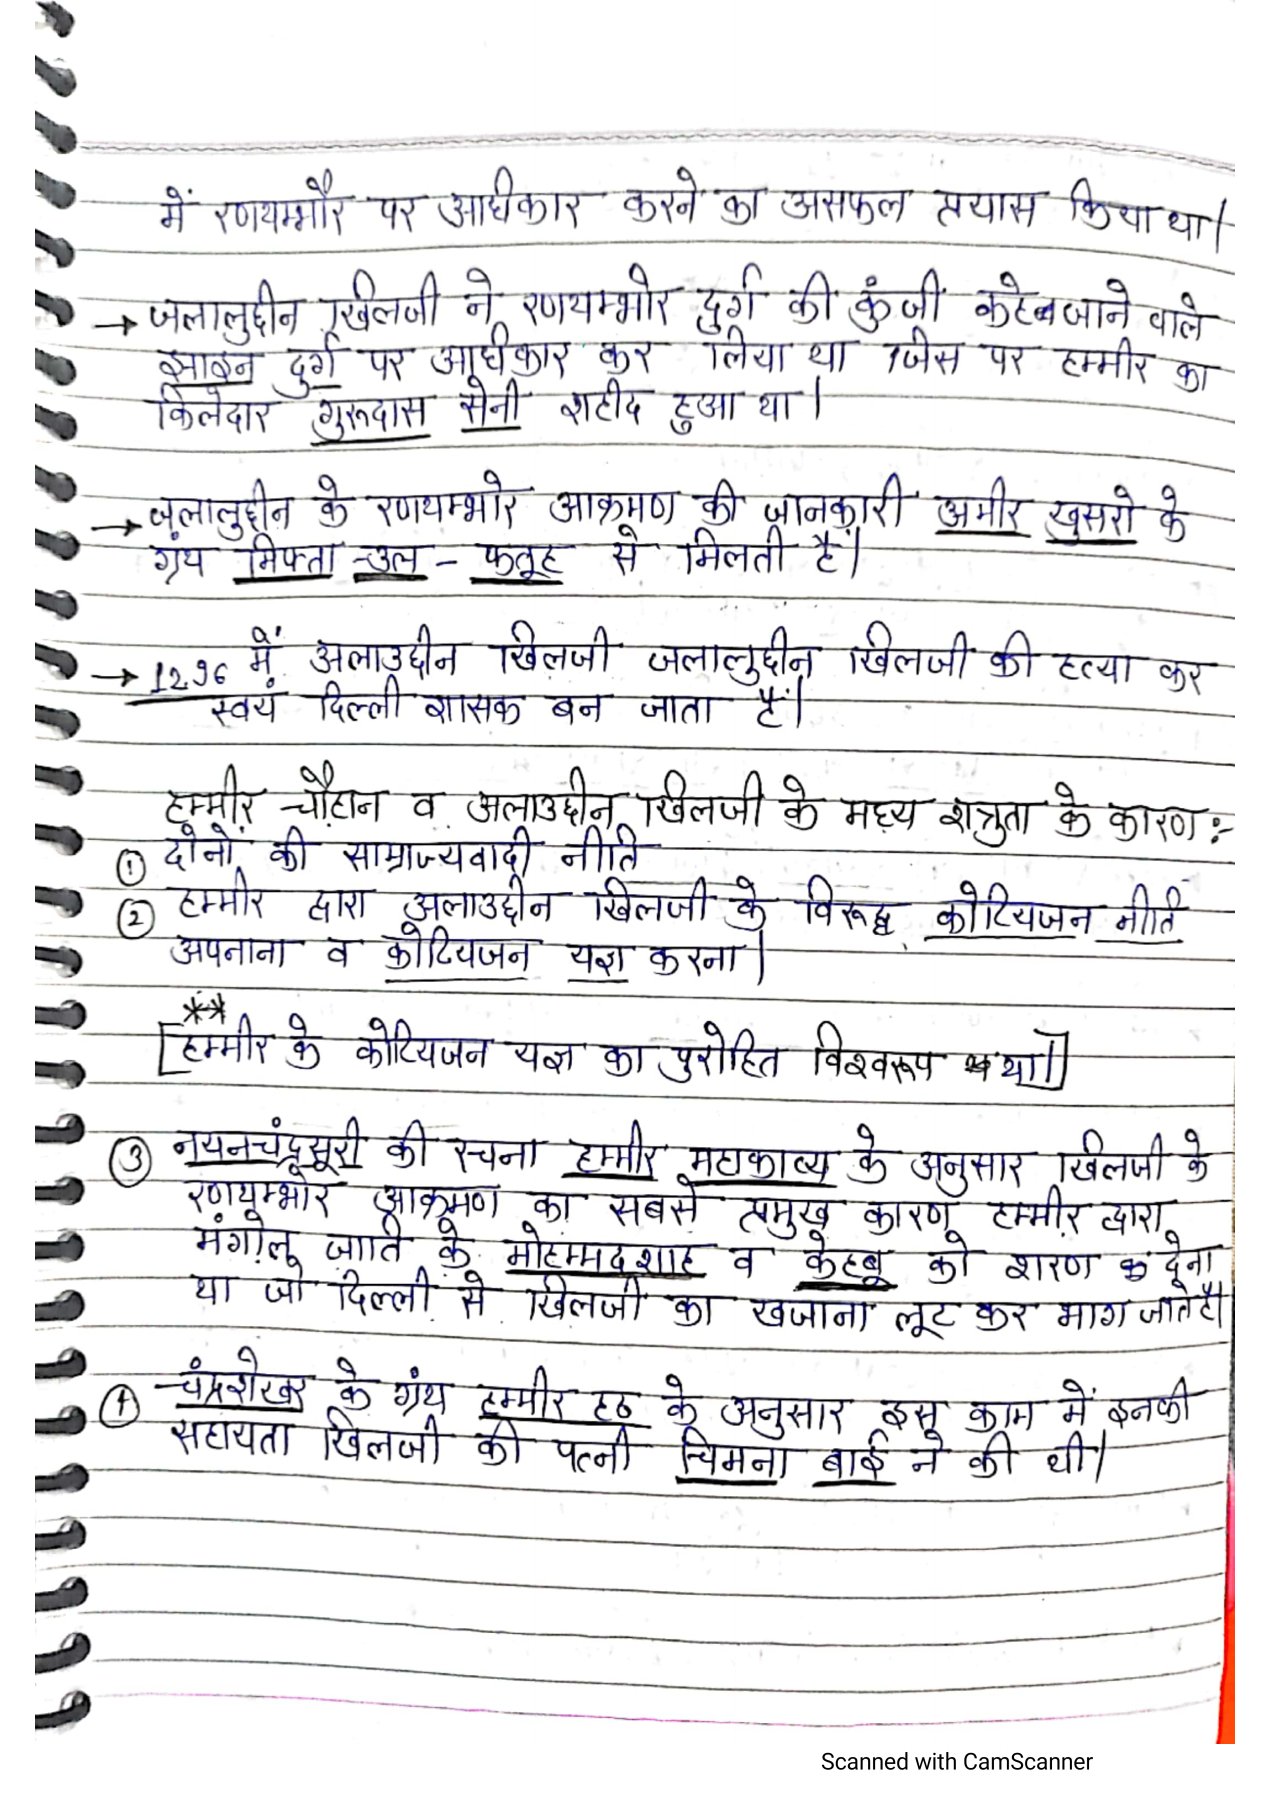 में रणथम्भौर पर अधिकार करने का असफल प्रयास किया था।
→ जलालुद्दीन खिलजी ने रणथम्भोर दुर्ग की कुंजी कहे जाने वाले
झाइन दुर्ग पर अधिकार कर लिया था जिस पर हम्मीर का
किलेदार गुरुदास सेनी शहीद हुआ था।
→ जलालुद्दीन के रणथम्भोर आक्रमण की जानकारी अमीर खुसरो के
ग्रंथ मिफ्ता-उल-फतूह से मिलती है।
→ 1296 में अलाउद्दीन खिलजी जलालुद्दीन खिलजी की हत्या कर
स्वयं दिल्ली शासक बन जाता है।
हम्मीर चौहान व अलाउद्दीन खिलजी के मध्य शत्रुता के कारण:-
① दोनों की साम्राज्यवादी नीति
② हम्मीर द्वारा अलाउद्दीन खिलजी के विरूद्ध कोटियजन नीति
अपनाना व कोटियजन यज्ञ करना।
**
[हम्मीर के कोटियजन यज्ञ का पुरोहित विश्वरूप था।]
③ नयनचंद्रसूरी की रचना हम्मीर महाकाव्य के अनुसार खिलजी के
रणथम्भोर आक्रमण का सबसे प्रमुख कारण हम्मीर द्वारा
मंगोल जाति के मोहम्मदशाह व केहब्रू को शरण देना
था जो दिल्ली से खिलजी का खजाना लूट कर भाग जाते है।
④ चंद्रशेखर के ग्रंथ हम्मीर हठ के अनुसार इस काम में इनकी
सहायता खिलजी की पत्नी चिमना बाई ने की थी।
Scanned with CamScanner